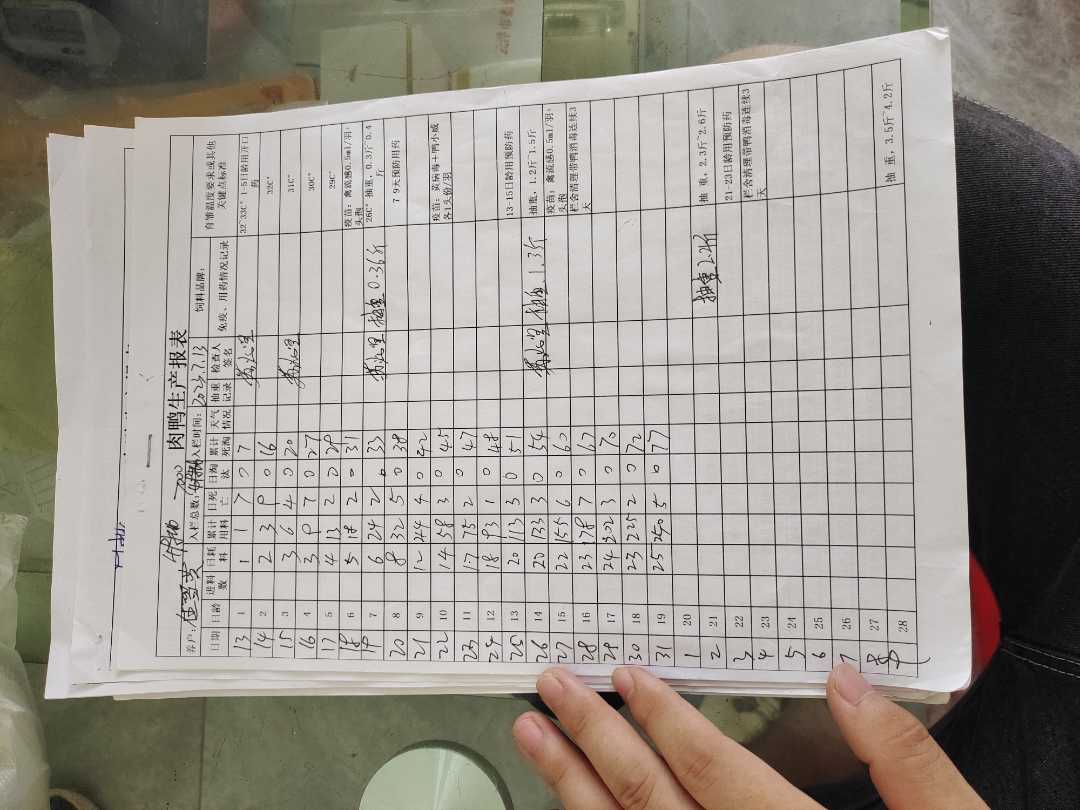 肉鸭生产报表
养户： 入栏总数： 7000 入栏时间：2023.7.13 饲料品牌：
日期 日龄 进料数 日耗料 累计用料 日死亡 日淘汰 累计死淘 天气情况 抽重记录 检查人签名 免疫、用药情况记录 育雏温度要求或其他关键点标准
13 1 1 1 7 0 7 32~33C° 1-5日龄用开口药
14 2 2 3 9 0 16 32C°
15 3 3 6 4 0 20 31C°
16 4 3 9 7 0 27 30C°
17 5 4 13 2 0 29 29C°
18 6 5 18 2 0 31 疫苗：禽流感0.5ml/羽，头孢
19 7 6 24 2 0 33 抽重 0.36斤 26C° 抽重，0.3斤~0.4斤
20 8 8 32 5 0 38 7 9天预防用药
21 9 12 44 4 0 42
22 10 14 58 3 0 45 疫苗：黄病毒+鸭小威各1头份/羽
23 11 17 75 2 0 47
24 12 18 93 1 0 48
25 13 20 113 3 0 51 13-15日龄用预防药
26 14 20 133 3 0 54 抽重 1.3斤 抽重，1.2斤~1.5斤
27 15 22 155 6 0 60 疫苗：禽流感0.5ml/羽+头孢
28 16 23 178 7 0 67 栏舍清理带鸭消毒连续3天
29 17 24 202 3 0 70
30 18 23 225 2 0 72
31 19 25 250 5 0 77
1 20
2 21 抽重 2.2斤 抽 重，2.3斤~2.6斤
3 22 21-23日龄用预防药
4 23 栏舍清理带鸭消毒连续3天
5 24
6 25
7 26
8 27
9 28 抽 重，3.5斤~4.2斤